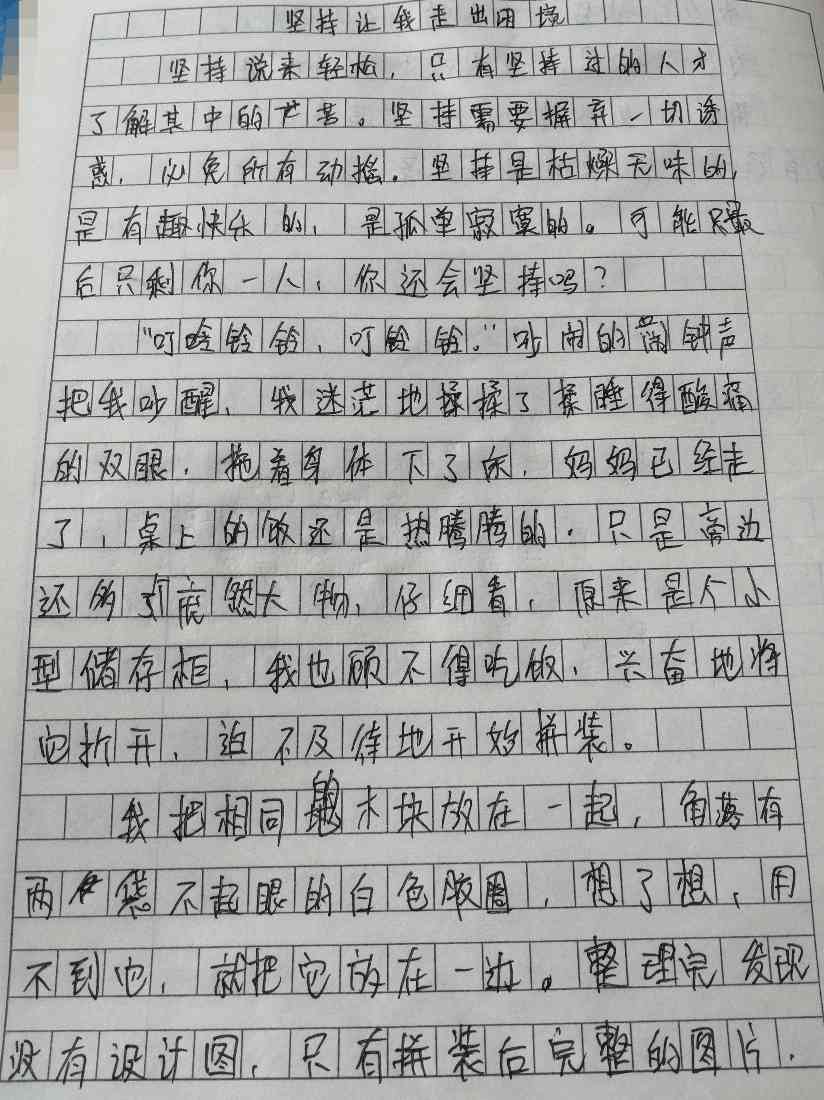 坚持让我走出困境
坚持说来轻松，只有坚持过的人才
了解其中的艰苦。坚持需要摒弃一切诱
惑，必免所有动摇。坚持是枯燥无味的，
是有趣快乐的，是孤单寂寞的。可能最
后只剩你一人，你还会坚持吗？
“叮啥铃铃，叮铃铃。”吵闹的闹钟声
把我吵醒，我迷茫地揉揉了揉睡得酸痛
的双眼，拖着身体下了床，妈妈已经走
了，桌上的饭还是热腾腾的。只是旁边
还多了庞然大物，仔细看，原来是个小
型储存柜，我也顾不得吃饭，兴奋地将
它折开，迫不及待地开始拼装。
我把相同的木块放在一起，角落有
两个袋不起眼的白色胶圈，想了想，用
不到它，就把它放在一边。整理完发现
没有设计图，只有拼装后完整的图片，